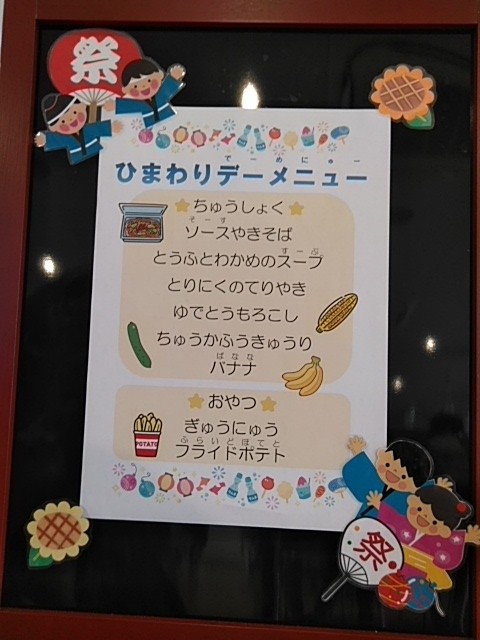 祭
でーめにゅー
ひまわりデーメニュー
ちゅうしょく
そーす
ソースやきそば
すーぷ
とうふとわかめのスープ
とりにくのてりやき
ゆでとうもろこし
ちゅうかふうきゅうり
ばなな
バナナ
おやつ
ぎゅうにゅう
ふらいどぽてと
フライドポテト
POTATO
祭